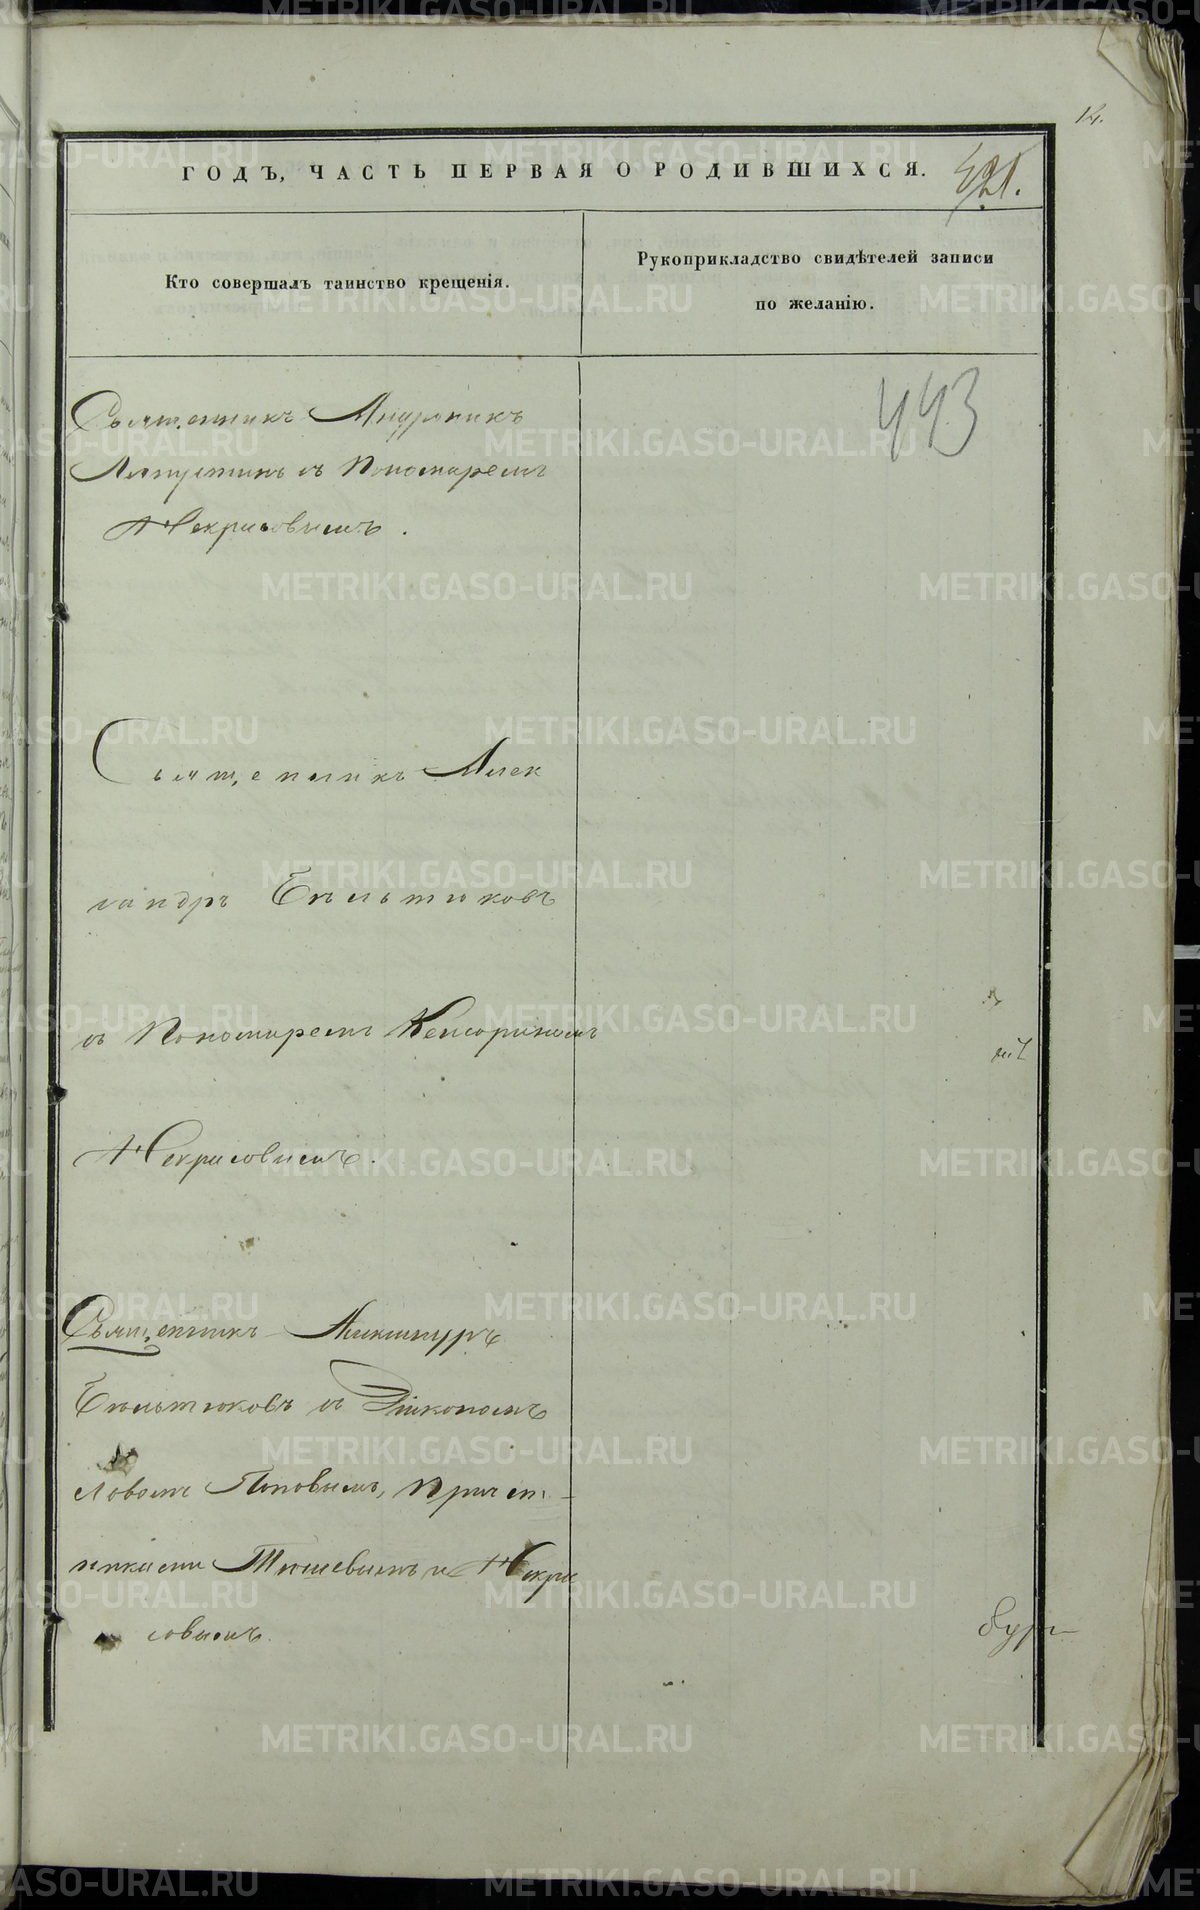 12.
ГОДЪ, ЧАСТЬ ПЕРВАЯ О РОДИВШИХСЯ.
421.
Кто совершалъ таинство крещенія.
Рукоприкладство свидѣтелей записи
по желанію.
443
Священникъ Андроникъ
Ляпустинъ съ Пономаремъ
Некрасовымъ.
Священникъ Алек
сандръ Бѣльтюковъ
съ Пономаремъ Кенсориномъ
Некрасовымъ.
Священникъ Александръ
Бѣльтюковъ съ Діакономъ
Поповымъ, Причет-
никами Тюшевымъ и Некра
совымъ.
METRIKI.GASO-URAL.RU